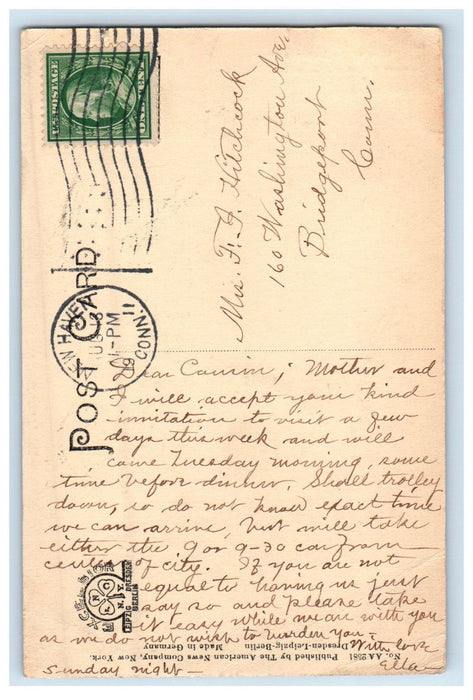 U.S. POSTAGE
NEW HAVEN
CONN.
1-PM
19 11
POST CARD
Mrs. F. A. Hitchcock
160 Washington Ave.
Bridgeport
Conn.
Dear Cousin; Mother and
I will accept your kind
invitation to visit a few
days this week and will
come Tuesday morning, some
time before dinner. Shall trolley
down, so do not know exact time
we can arrive, but will take
either the 9 or 9-30 car from
center of city. If you are not
equal to having us just
say so and please take
it easy while we are with you
as we do not wish to burden you.
With love
Ella
Sunday night
EXCELSIOR
A N C
N.Y.
LEIPZIG DRESDEN
BERLIN
No. AA 2581 Published by The American News Company, New York.
Dresden-Leipzig-Berlin Made in Germany